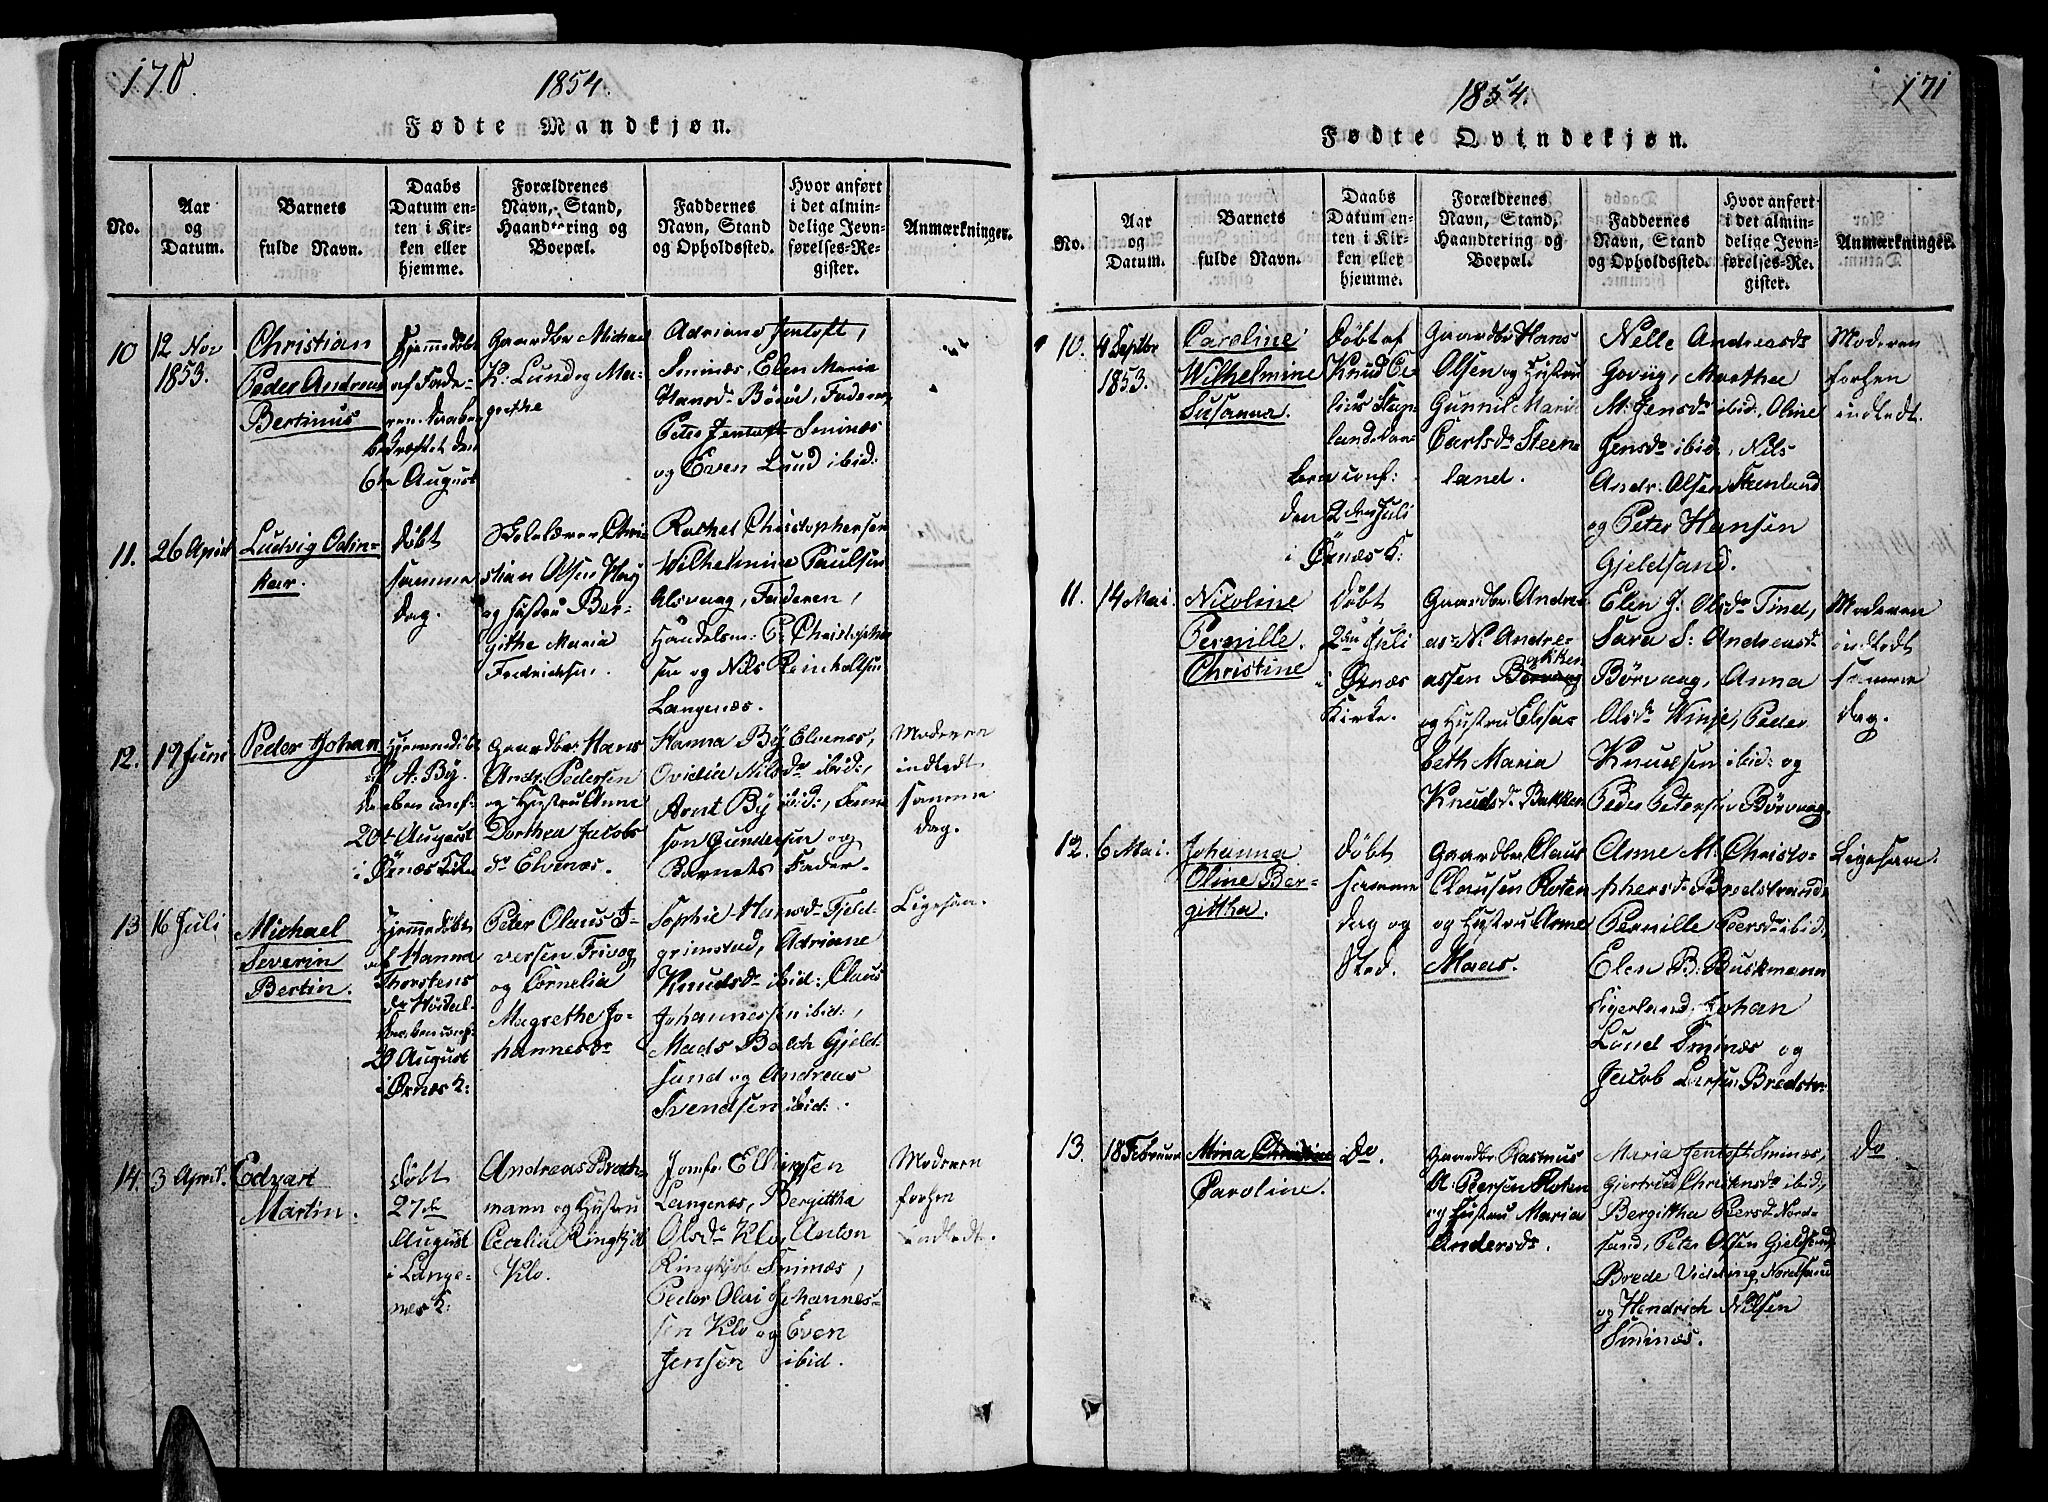 170.
1854.
Fødte Mandkjøn.
No.
Aar
og
Datum.
Barnets
fulde Navn.
Daabs
Datum en-
ten i Kir-
ken eller
hjemme.
Forældrenes
Navn, Stand,
Haandtering og
Boepæl.
Faddernes
Navn, Stand
og Opholdssted.
Hvor anført
i det almin-
delige Jevn-
førelses-Re-
gister.
Anmærkninger.
10
12 Nov
1853.
Christian
Peder Andreas
Bertinus
Hjemmedøbt
af Fade-
ren. Daaben
bekræftet den
6te August
Gaardbr Michael
K. Lund og Ma-
grethe
Adriane Jentoft,
Sminæs, Elen Maria
Hansdr Börøe, Faderen,
Peter Jentoft Sminæs
og Even Lund ibid:
11.
26 April
Ludvig Odin-
kar.
Døbt
samme
dag.
Skolelærer Chri-
stian Olsen Hay
og Hustru Ber-
githe Maria
Fredriksen.
Rachel Christophersen
Wilhelmine Paulsen
Alsvaag, Faderen,
Handelsm: C. Christopher
sen og Nils Reinholtsen
Langenæs.
12.
19 Juni
Peder Johan
Hjemmedøbt
af A. By.
Daaben conf.
20de August
i Øxnæs Kirke
Gaardbr: Hans
Andr: Pedersen
og Hustru Anne
Dorthea Jacobs
dr Elvenæs.
Hanna By Elvenæs,
Ovidia Nilsdr ibid:,
Arnt By ibid:,
son Gundersen og
Barnets Fader.
Moderen
indledt
samme
dag.
13
16 Juli
Michael
Severin
Bertin.
Hjemmedøbt
af Hanna
Thorstens
dr
Daaben conf.
20 August
i Øxnæs K:
Peter Olaus I-
versen Trivog
og Cornelia
Magrethe Jo-
hannesdr
Sophie Hansdr Fjeld-
grimstad, Adriane
Knudsdr ibid: Claus
Johannessen ibid:,
Mads Balch Gjeld-
sand og Andreas
Svendsen ibid:.
Ligesaa.
14.
3 April.
Edvart
Martin.
Døbt
27de
August
i Lange-
næs K:
Andreas Brach-
mann og Hustru
Cecelia Ringkjøb
Klo.
Jomfr Ellingsen
Langenæs, Bergittha
Olsdr Klo, Anton
Ringkjøb Sminæs,
Peder Olai Johannes-
sen Klo og Even
Jensen ibid.
Moderen
forhen
indledt.
171
1854.
Fødte Qvindekjøn.
No.
Aar
og
Datum.
Barnets
fulde Navn.
Daabs
Datum en-
ten i Kir-
ken eller
hjemme.
Forældrenes
Navn, Stand,
Haandtering og
Boepæl.
Faddernes
Navn, Stand
og Opholdssted.
Hvor anført
i det almin-
delige Jevn-
førelses-Re-
gister.
Anmærkninger.
10.
4 Septbr
1853.
Caroline
Wilhelmine
Susanna.
Døbt af
Knud Ce-
lius Steen-
land. Daa-
ben conf:
den 2den Juli
i Øxnæs K:
Gaardbr Hans
Olsen og Hustru
Gunnil Marie
Carlsdr Steen-
land.
Nelle Andreasdr
Goviig, Martha
M. Jensdr ibid:, Oline
Jensdr ibid, Nils
Andr. Olsen Steenland
og Peter Hansen
Gjeldsand.
Moderen
forhen
indledt.
11.
14 Mai.
Nicoline
Pernille
Christine
Døbt
2den Juli
i Øxnæs
Kirke.
Gaardbr. Andre-
as N. Andre-
assen Bakken
og Hustru Elisa-
beth Maria
Knudsdr Bakken
Elen J. Olsdr Tind,
Sara S: Andreasdr
Börvaag, Anna
Olsdr Vinje, Peder
Knudsen ibid: og
Peder Petersen Börvaag
Moderen
indledt
samme
dag.
12.
6 Mai.
Johanna
Oline Ber-
gittha.
Døbt
samme
dag og
Sted.
Gaardbr. Claus
Clausen Roten
og Hustru Anne
Maas.
Anne M. Christo-
phersdr Bredstrand,
Pernille Peersdr ibid:,
Elen B. Buskmann
Tigerland, Johan
Lund Sminæs og
Jacob Larsen Bredstr.
Ligesaa.
13.
18 Februar
Mina Christine
Caroline.
Do.
Gaardbr Rasmus
A. Peersen Roten
og Hustru Maria
Andersdr.
Maria Jentoft Sminæs,
Gjertrud Christensdr ibid;
Bergittha Peersdr Nord-
sand, Peter Olsen Gjeldsand
Brede Vidding Nordsand
og Hendrich Nilsen
Sminæs.
Do